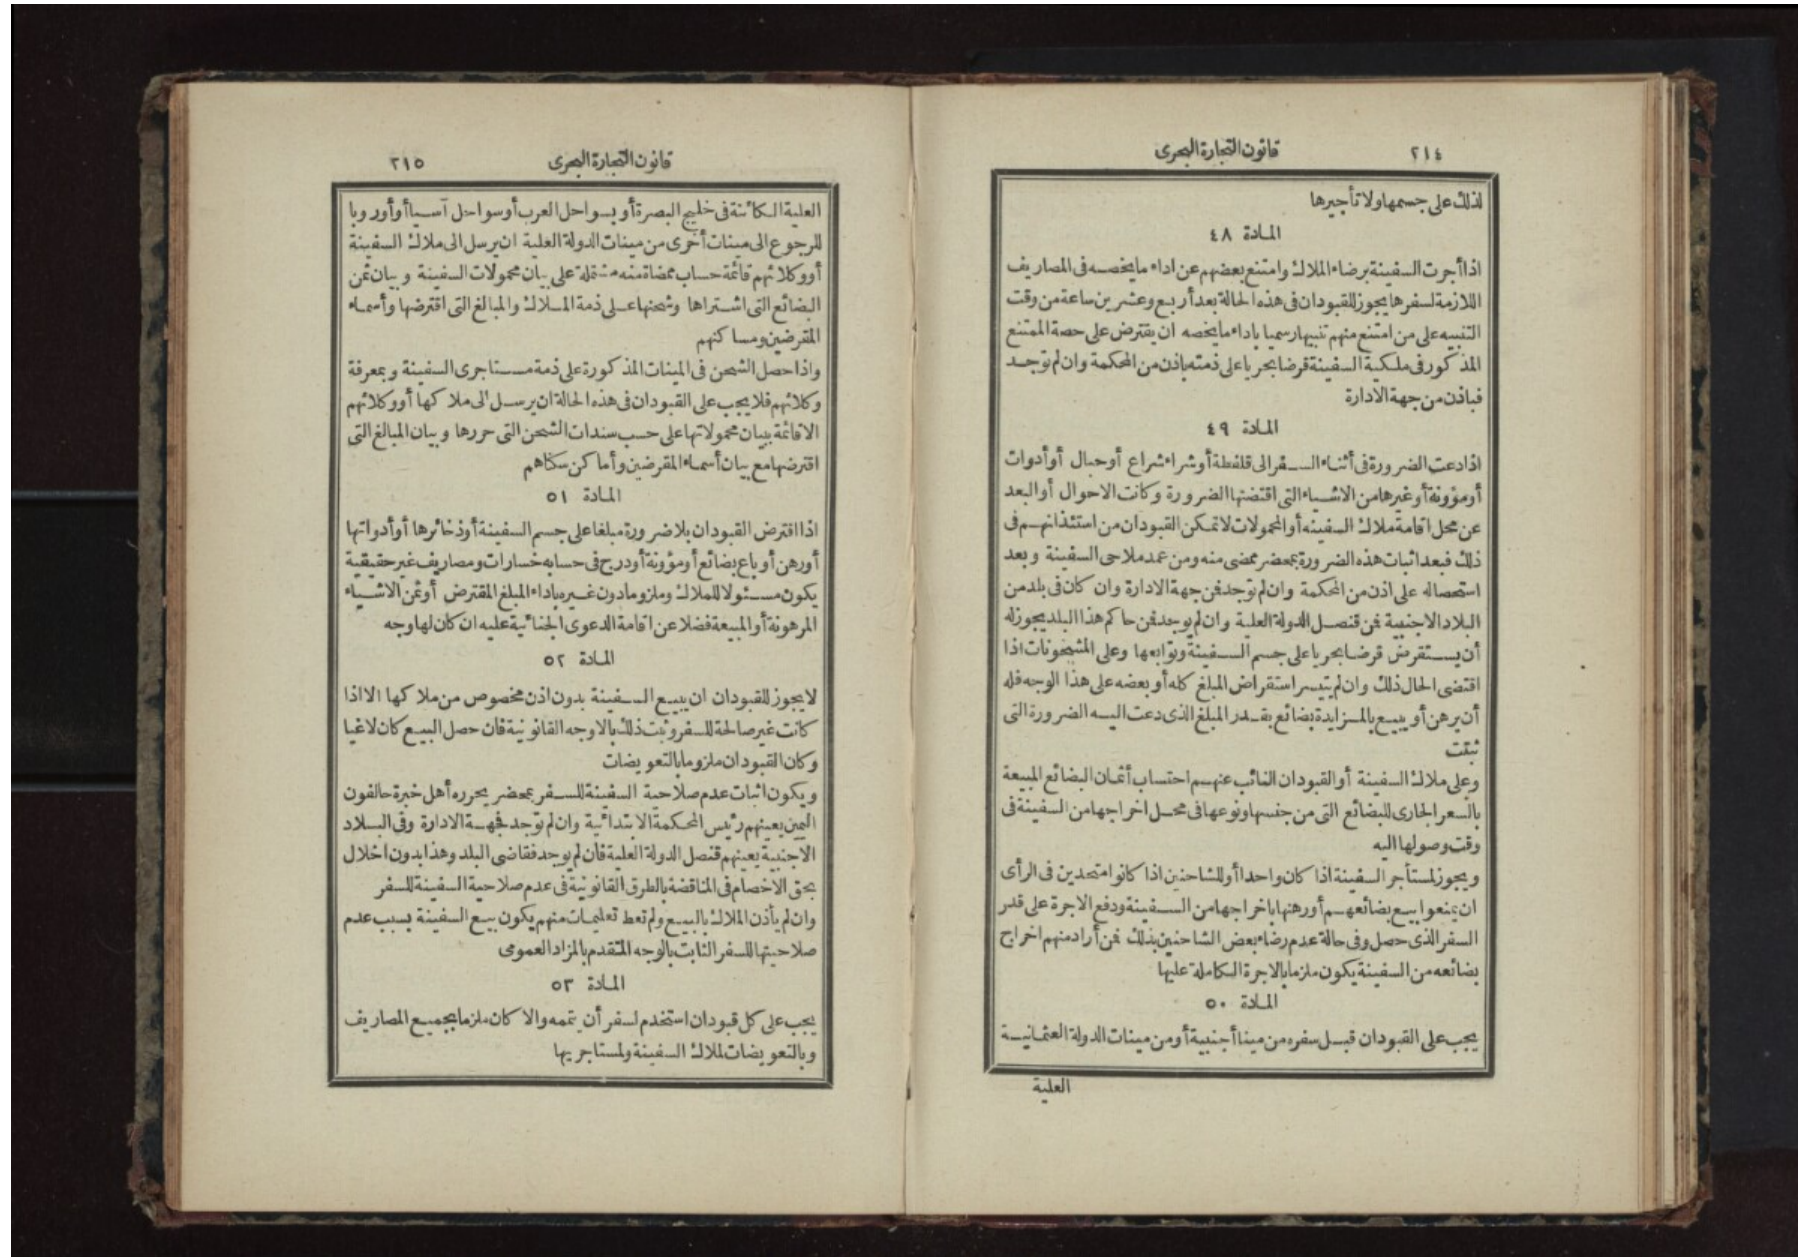 ٢١٤
قانون التجارة البحرى
لذلك على جسمها ولا تأجيرها
المادة ٤٨
اذا أجرت السفينة برضاء الملاك وامتنع بعضهم عن اداء ما يخصه فى المصاريف
اللازمة لسفرها يجوز للقبودان فى هذه الحالة بعد أربع وعشرين ساعة من وقت
التنبيه على من امتنع منهم تنبيها رسميا باداء ما يخصه ان يقترض على حصة الممتنع
المذكور فى ملكية السفينة قرضا بحريا على ذمته باذن من المحكمة وان لم توجد
فباذن من جهة الادارة
المادة ٤٩
اذا دعت الضرورة فى أثناء السفر الى قلفطة أو شراء شراع أو حبال أو أدوات
أو مؤونة أو غيرها من الاشياء التى اقتضتها الضرورة وكانت الاحوال أو البعد
عن محل اقامة ملاك السفينه أو المحمولات لا تمكن القبودان من استئذانهم فى
ذلك فبعد اثبات هذه الضرورة بمحضر ممضى منه ومن عمد ملاحى السفينة وبعد
استحصاله على اذن من المحكمة وان لم توجد فمن جهة الادارة وان كان فى بلد من
البلاد الاجنبية فمن قنصل الدولة العلية وان لم يوجد فمن حاكم هذا البلد يجوز له
أن يستقرض قرضا بحريا على جسم السفينة وتوابعها وعلى المشحونات اذا
اقتضى الحال ذلك وان لم يتيسر استقراض المبلغ كله أو بعضه على هذا الوجه فله
أن يرهن أو يبيع بالمزايدة بضائع بقدر المبلغ الذى دعت اليه الضرورة التى
ثبتت
وعلى ملاك السفينة أو القبودان النائب عنهم احتساب أثمان البضائع المبيعة
بالسعر الجارى للبضائع التى من جنسها ونوعها فى محل اخراجها من السفينة فى
وقت وصولها اليه
ويجوز لمستأجر السفينة اذا كان واحدا أو للشاحنين اذا كانوا متحدين فى الرأى
ان يمنعوا بيع بضائعهم أو رهنها باخراجها من السفينة ودفع الاجرة على قدر
السفر الذى حصل وفى حالة عدم رضاء بعض الشاحنين بذلك فمن أراد منهم اخراج
بضائعه من السفينة يكون ملزما بالاجرة الكاملة عليها
المادة ٥٠
يجب على القبودان قبل سفره من مينا أجنبية أو من مينات الدولة العثمانية
العلية
قانون التجارة البحرى
٢١٥
العلية الكائنة فى خليج البصرة أو بسواحل العرب أو سواحل آسيا أو أوروبا
للرجوع الى مينات أخرى من مينات الدولة العلية ان يرسل الى ملاك السفينة
أو وكلائهم قائمة حساب ممضاة منه مشتملة على بيان محمولات السفينة وبيان ثمن
البضائع التى اشتراها وشحنها على ذمة الملاك والمبالغ التى اقترضها وأسماء
المقرضين ومساكنهم
واذا حصل الشحن فى المينات المذكورة على ذمة مستاجرى السفينة وبمعرفة
وكلائهم فلا يجب على القبودان فى هذه الحالة ان يرسل الى ملاكها أو وكلائهم
الا قائمة ببيان محمولاتها على حسب سندات الشحن التى حررها وبيان المبالغ التى
اقترضها مع بيان أسماء المقرضين وأماكن سكناهم
المادة ٥١
اذا اقترض القبودان بلا ضرورة مبلغا على جسم السفينة أو ذخائرها أو أدواتها
أو رهن أو باع بضائع أو مؤونة أو درج فى حسابه خسارات ومصاريف غير حقيقية
يكون مسئولا للملاك وملزوما دون غيره باداء المبلغ المقترض أو ثمن الاشياء
المرهونة أو المبيعة فضلا عن اقامة الدعوى الجنائية عليه ان كان لها وجه
المادة ٥٢
لا يجوز للقبودان ان يبيع السفينة بدون اذن مخصوص من ملاكها الا اذا
كانت غير صالحة للسفر وثبت ذلك بالاوجه القانونية فان حصل البيع كان لاغيا
وكان القبودان ملزوما بالتعويضات
ويكون اثبات عدم صلاحية السفينة للسفر بمحضر يحرره أهل خبرة حالفون
اليمين يعينهم رئيس المحكمة الابتدائية وان لم توجد فجهة الادارة وفى البلاد
الاجنبية يعينهم قنصل الدولة العلية فان لم يوجد فقاضى البلد وهذا بدون اخلال
بحق الاخصام فى المناقضة بالطرق القانونية فى عدم صلاحية السفينة للسفر
وان لم يأذن الملاك بالبيع ولم تعط تعليمات منهم يكون بيع السفينة بسبب عدم
صلاحيتها للسفر الثابت بالوجه المتقدم بالمزاد العمومى
المادة ٥٣
يجب على كل قبودان استخدم لسفر أن يتمه والا كان ملزما بجميع المصاريف
وبالتعويضات لملاك السفينة ولمستاجريها